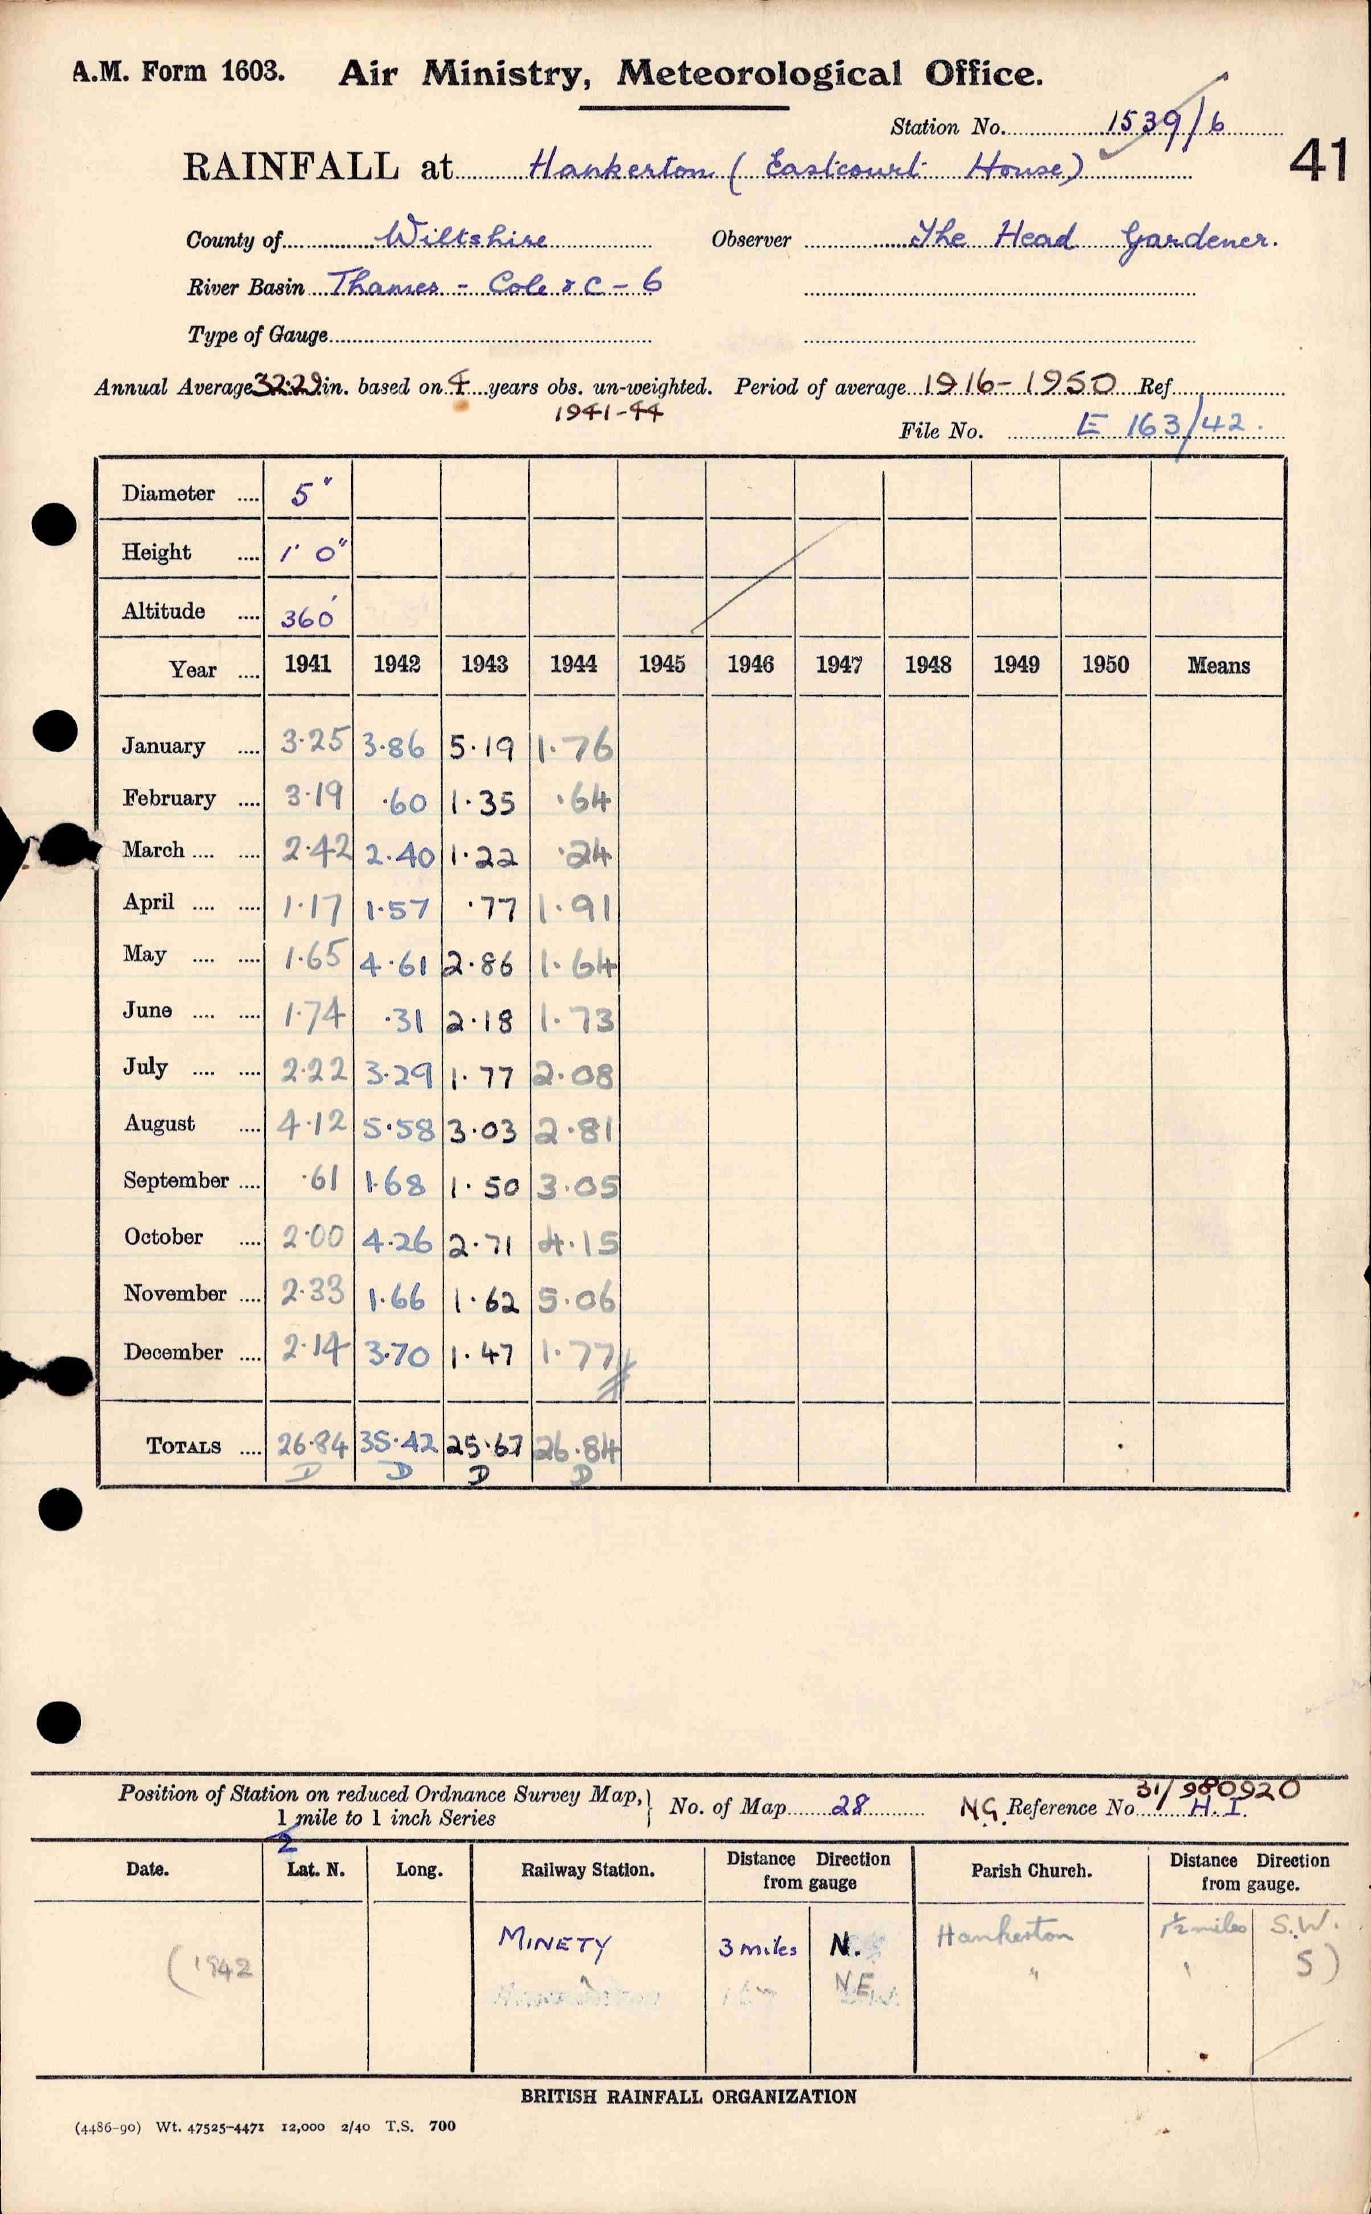 A.M. Form 1603. Air Ministry, Meteorological Office.
Station No. 1539/6
RAINFALL at Hankerton (Eastcourt House)
41
County of Wiltshire Observer The Head Gardener.
River Basin Thames - Cole & C - 6
Type of Gauge
Annual Average 32.29 in. based on 4 years obs. un-weighted. Period of average 1916-1950 Ref.
1941-44
File No. E 163/42.
Diameter .... 5"
Height .... 1' 0"
Altitude .... 360'
Year .... 1941 1942 1943 1944 1945 1946 1947 1948 1949 1950 Means
January .... 3.25 3.86 5.19 1.76
February .... 3.19 .60 1.35 .64
March .... .... 2.42 2.40 1.22 .24
April .... .... 1.17 1.57 .77 1.91
May .... .... 1.65 4.61 2.86 1.64
June .... .... 1.74 .31 2.18 1.73
July .... .... 2.22 3.29 1.77 2.08
August .... 4.12 5.58 3.03 2.81
September .... .61 1.68 1.50 3.05
October .... 2.00 4.26 2.71 4.15
November .... 2.33 1.66 1.62 5.06
December .... 2.14 3.70 1.47 1.77
TOTALS .... 26.84 35.42 25.67 26.84
D D D D
Position of Station on reduced Ordnance Survey Map, 1 mile to 1 inch Series
2
No. of Map 28 N.G. Reference No. 31/980920
H.I.
Date. Lat. N. Long. Railway Station. Distance Direction from gauge Parish Church. Distance Direction from gauge.
MINETY 3 miles N. Hankerton 1½ miles S.W.
(1942 N.E. " ' S)
BRITISH RAINFALL ORGANIZATION
(4486-90) Wt. 47525-4471 12,000 2/40 T.S. 700